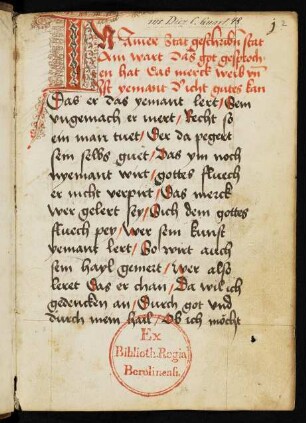 Ms Diez C. quart 48. 1 2
IN Ainer Stat geschribn stat
Ain wart Das got gesproch
en hat Das merck weib vn
Ist yemant Nicht gutes kan
Das er das yemant lert / Sein
vngemach er mert / Recht so
ein man tuet / Der da pegert
sein selbs guet / Das ym noch
nyemant wirt / gottes fluech
er nicht verpirt / Das merck
wer gelert sey / Och dem gottes
fluech pey / wer sein kunst
yemant lert / So wirt auch
sein hayl gemert / wer alß
leret Das er chan / Da wil ich
gedencken an / Durch got vnd
durch mein hail / Ob ich möcht
Ex
Biblioth. Regia
Berolinensi.